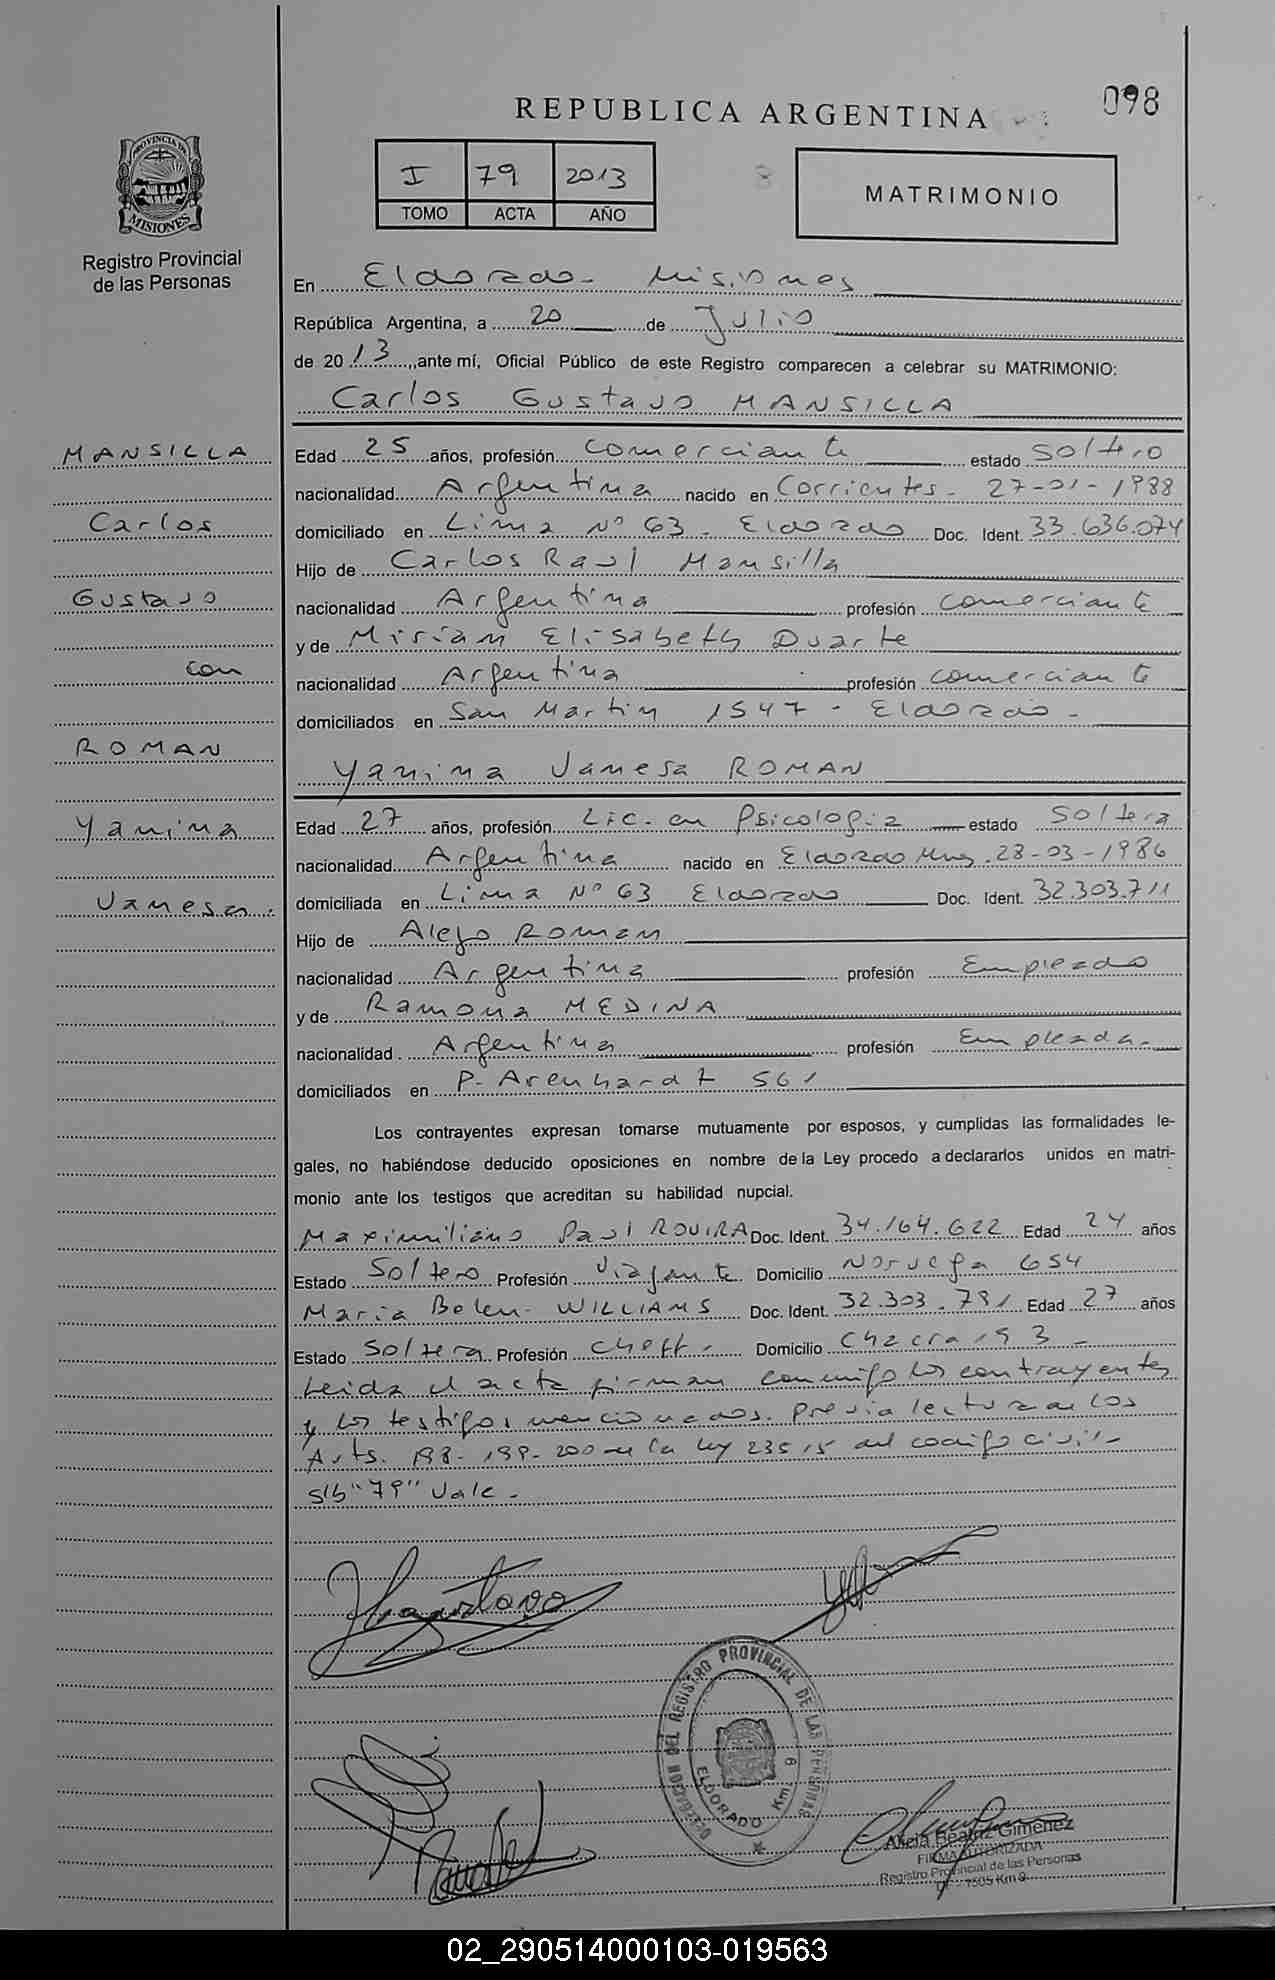 098
REPUBLICA ARGENTINA
I 79 2013
TOMO ACTA AÑO
MATRIMONIO
PROVINCIA DE
MISIONES
Registro Provincial
de las Personas
En Eldorado - Misiones
República Argentina, a 20 de Julio
de 2013, ante mí, Oficial Público de este Registro comparecen a celebrar su MATRIMONIO:
Carlos Gustavo MANSILLA
MANSILLA
Carlos
Gustavo
con
ROMAN
Yanina
Vanesa.
Edad 25 años, profesión comerciante estado soltero
nacionalidad Argentina nacido en Corrientes - 27-01-1988
domiciliado en Lima Nº 63 - Eldorado Doc. Ident. 33.636.074
Hijo de Carlos Raul Mansilla
nacionalidad Argentina profesión comerciante
y de Miriam Elisabeth Duarte
nacionalidad Argentina profesión comerciante
domiciliados en San Martin 1547 - Eldorado -
Yanina Vanesa ROMAN
Edad 27 años, profesión Lic. en Psicologia estado soltera
nacionalidad Argentina nacido en Eldorado Mnes. 28-03-1986
domiciliada en Lima Nº 63 Eldorado Doc. Ident. 32.303.711
Hijo de Alejo Roman
nacionalidad Argentina profesión Empleado
y de Ramona MEDINA
nacionalidad Argentina profesión Empleada.
domiciliados en P. Arenhardt 561
Los contrayentes expresan tomarse mutuamente por esposos, y cumplidas las formalidades le-
gales, no habiéndose deducido oposiciones en nombre de la Ley procedo a declararlos unidos en matri-
monio ante los testigos que acreditan su habilidad nupcial.
Maximiliano Paul ROVIRA Doc. Ident. 34.164.622 Edad 24 años
Estado Soltero Profesión Viajante Domicilio Noruega 654
Maria Belen WILLIAMS Doc. Ident. 32.303.781 Edad 27 años
Estado Soltera Profesión Cheff. Domicilio Chacra 193 -
Leida el acta firman conmigo los contrayentes
y los testigos mencionados. Previa lectura de los
Arts. 198-199-200 de la ley 23515 del codigo civil -
S/b "79" Vale -
REGISTRO PROVINCIAL DE LAS PERSONAS
ELDORADO Km. 9
Alicia Beatriz Gimenez
FIRMA AUTORIZADA
Registro Provincial de las Personas
1505 Km 9
02_290514000103-019563